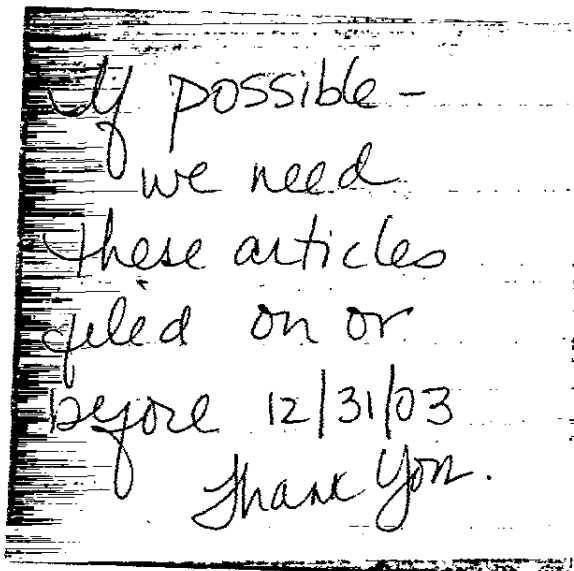 If possible -
we need
these articles
filed on or
before 12/31/03
Thank You.